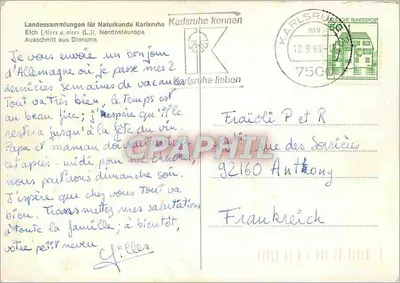 Landessammlungen für Naturkunde Karlsruhe
Elch (Alces a. alces (L.)), Nordosteuropa
Ausschnitt aus Diorama
Karlsruhe kennen
K
Karlsruhe lieben
KARLSRUHE
mv
12.9.80
7500
DEUTSCHE BUNDESPOST
50
Je vous envoie un bonjour
d'Allemagne où je passe mes 2
dernières semaines de vacances
Tout va très bien, le temps est
au beau fixe; j'espère qu'il le
restera jusqu'à la fête du vin.
Papa et maman doivent
cet après-midi
nous partirons dimanche soir.
J'espère que chez vous tout va
bien. Transmettez mes salutations
à toute la famille; à bientôt,
votre petit neveu
Gilles
Fraioli P et R
rue des
92160 Antony
Frankreich
PHILAPHIL